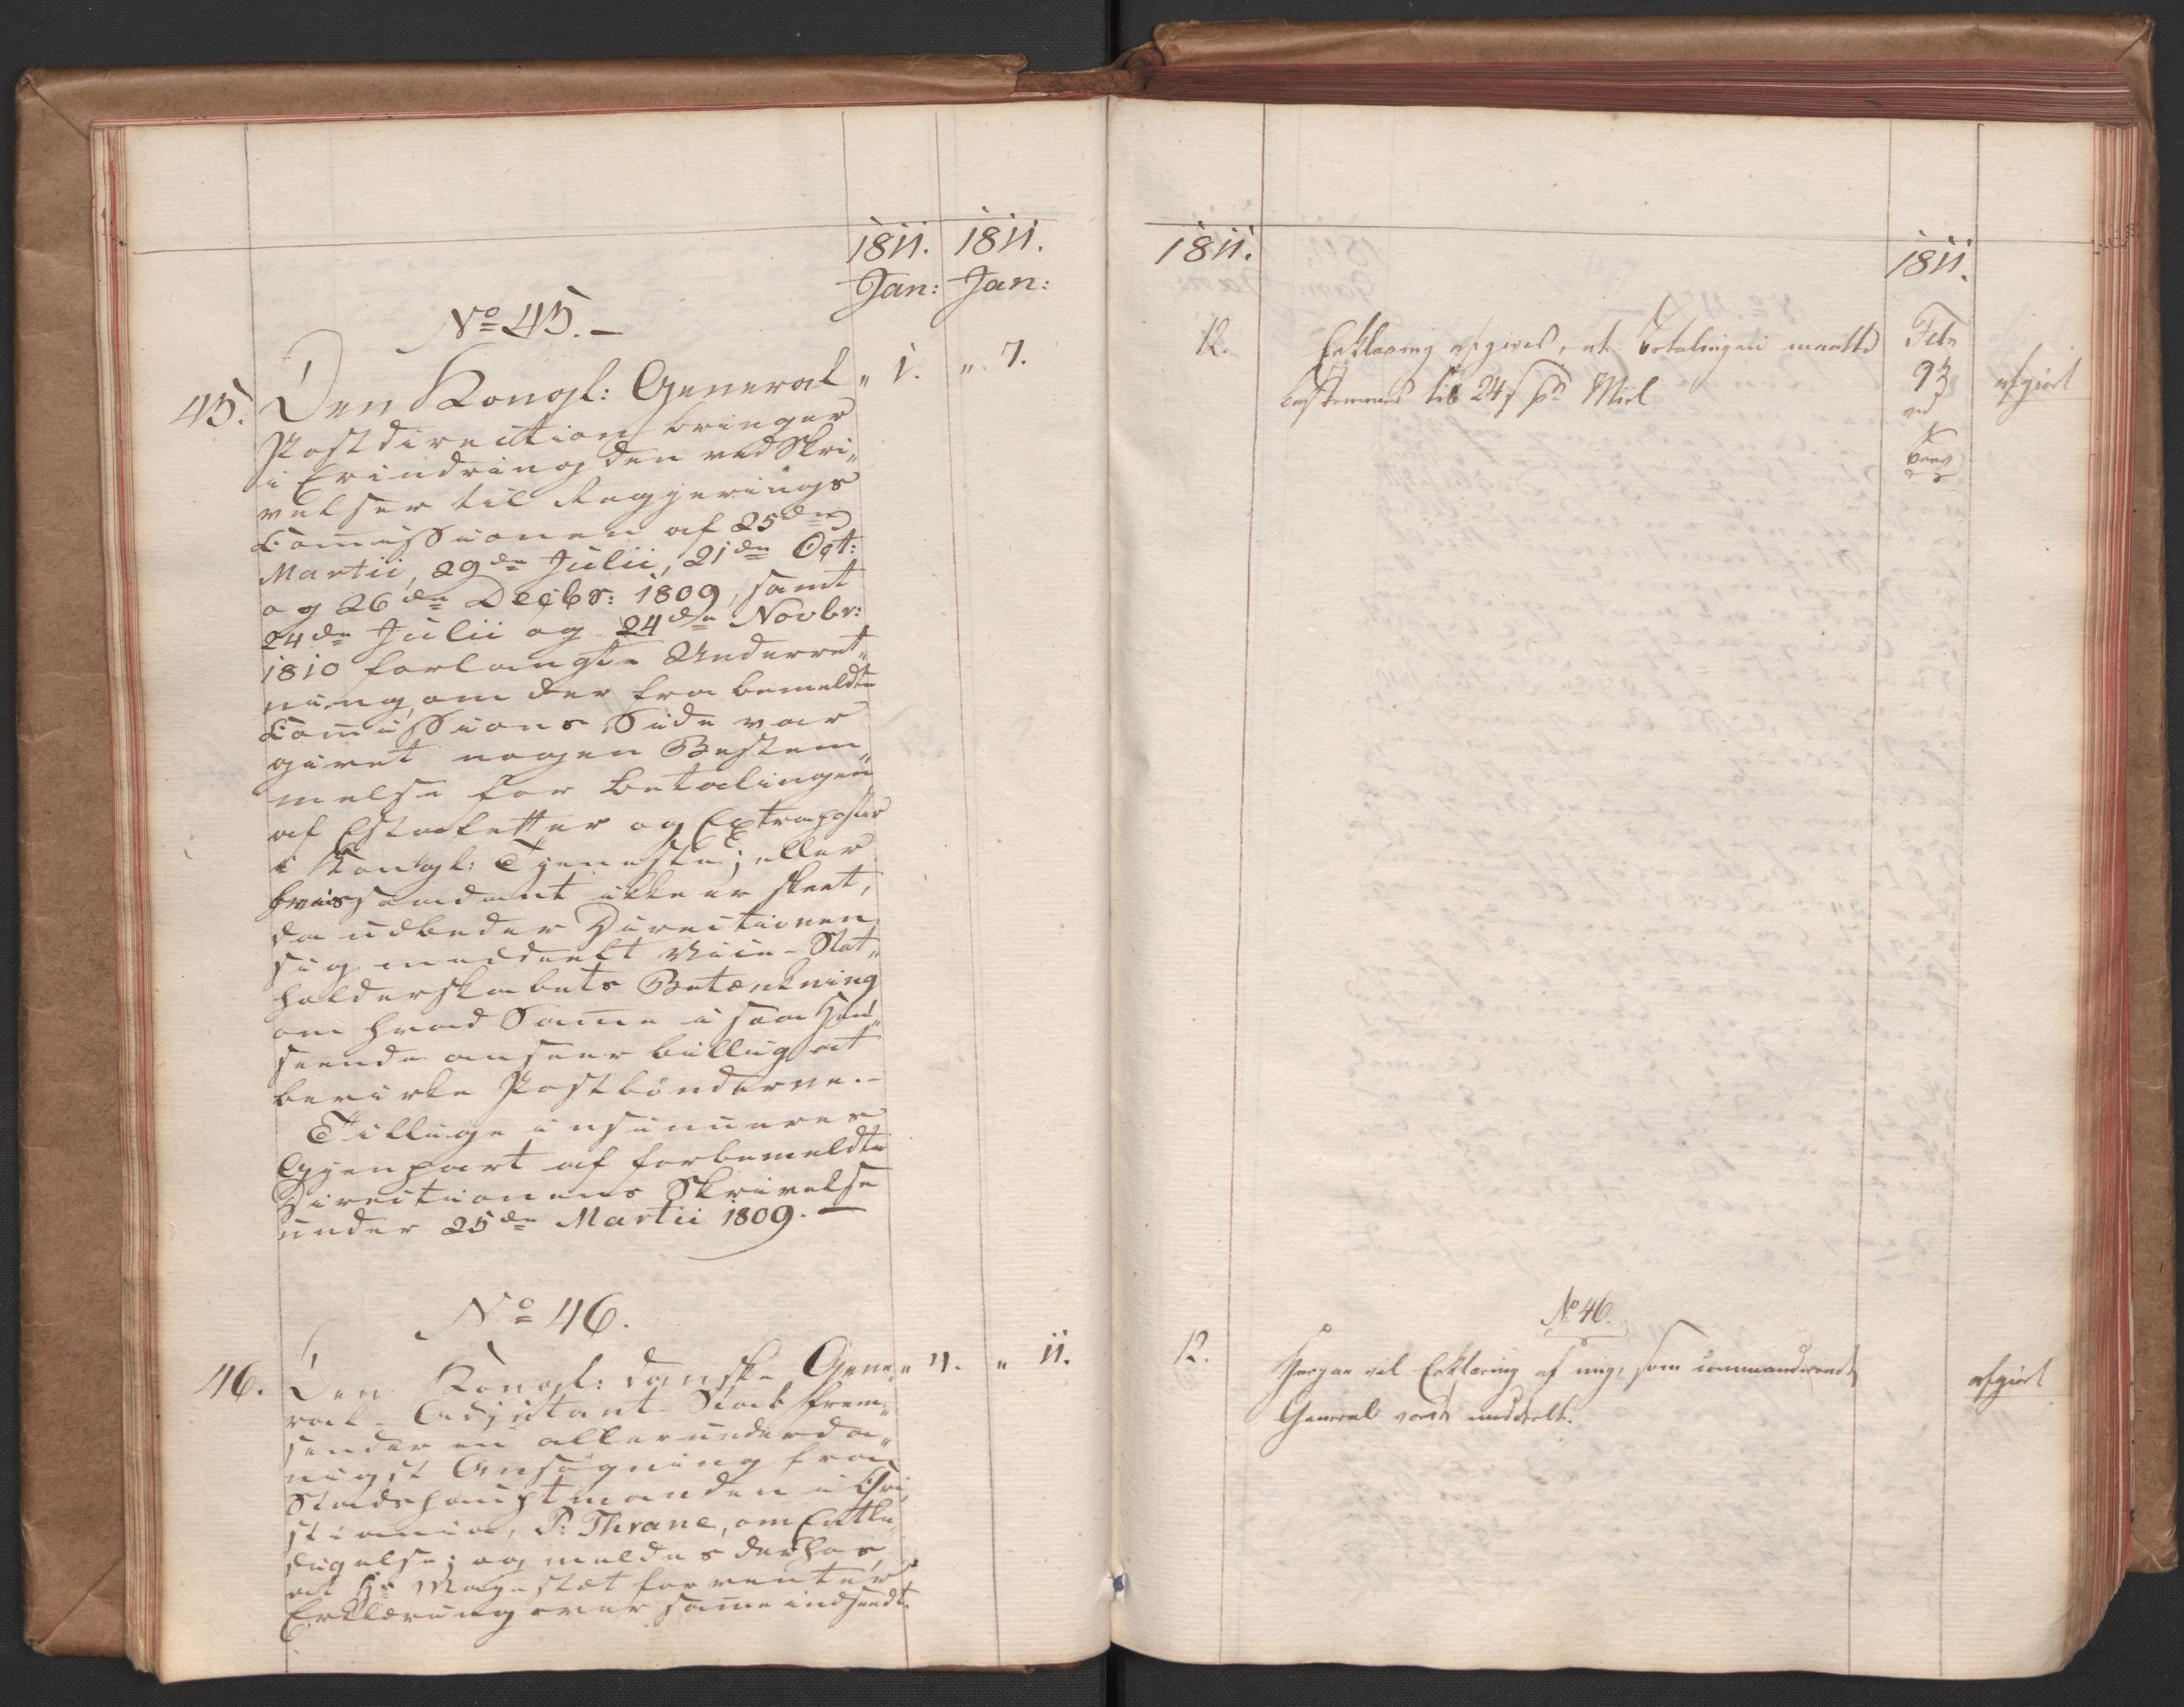 1811. 1811.
Jan: Jan:
No 45.-
45. Den Kongl: General " 1. " 7.
Postdirection bringer
i Erindring den ved Skri„
velser til Regjerings
Commissionen af 25de
Martii, 29de Julii, 21de Oct:
og 26de Decbr: 1809, samt
24de Julii og 24de Novbr:
1810 forlangte Underret„
ning, om der fra bemeldte
Commissions Side var
givet nogen Bestem„
melse for Betalingen
af Estafetter og Extraposter
i Kongl: Tjeneste; eller
hvis saadant ikke er skeet,
da udbeder Directionen
sig meddeelt Vice-Stat„
holderskabets Betænkning
om hvad Samme i saa Hen„
seende anseer billig at
bevirke Postbönderne.-
Tillige insinueres
Gjenpart af forbemeldte
Directionens Skrivelse
under 25de Martii 1809.-
No 46.
46. Den Kongl: danske Gene„ " 4. " 11.
ral-Adjutant-Stab frem„
sender en allerunderda„
nigst Ansögning fra
Stadshauptmanden i Chri„
stiania, P: Thrane, om Entle„
digelse; og meldes derhos,
at Hs Majestæt forventer
Erklæring over samme indsendt.
1811.
1811.
12. Erklæring afgives, at Betalingen maatte
bestemmes til 24 s pr Miil
Febr
93
ved
Brev
afgiort
No 46.
12. Herpaa vil Erklæring af mig, som commanderende
General vorde meddeelt.
afgiort